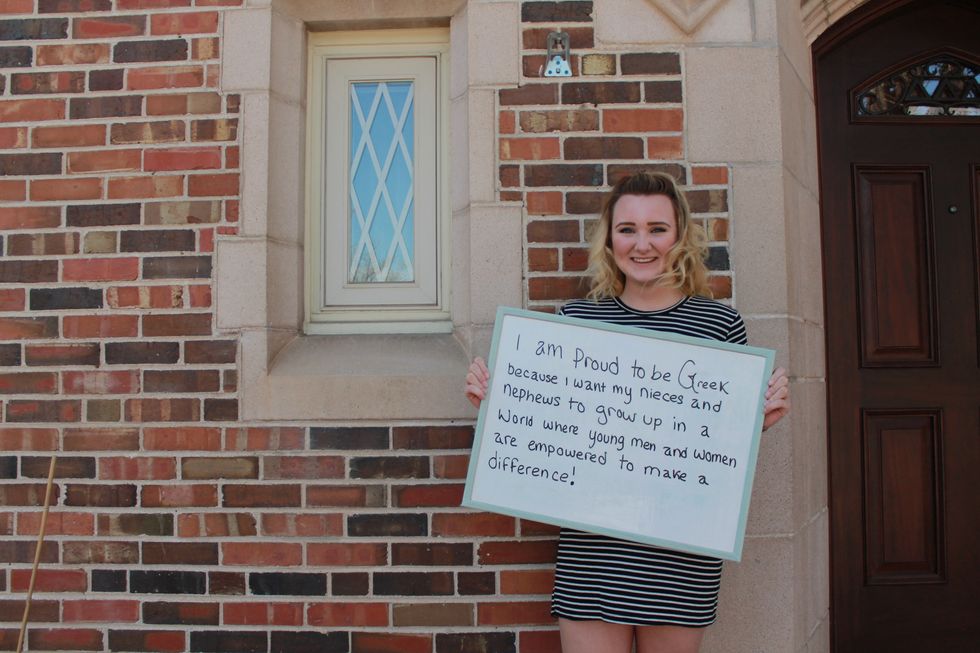 I am Proud to be Greek
because I want my nieces and
nephews to grow up in a
World where young men and women
are empowered to make a
difference!